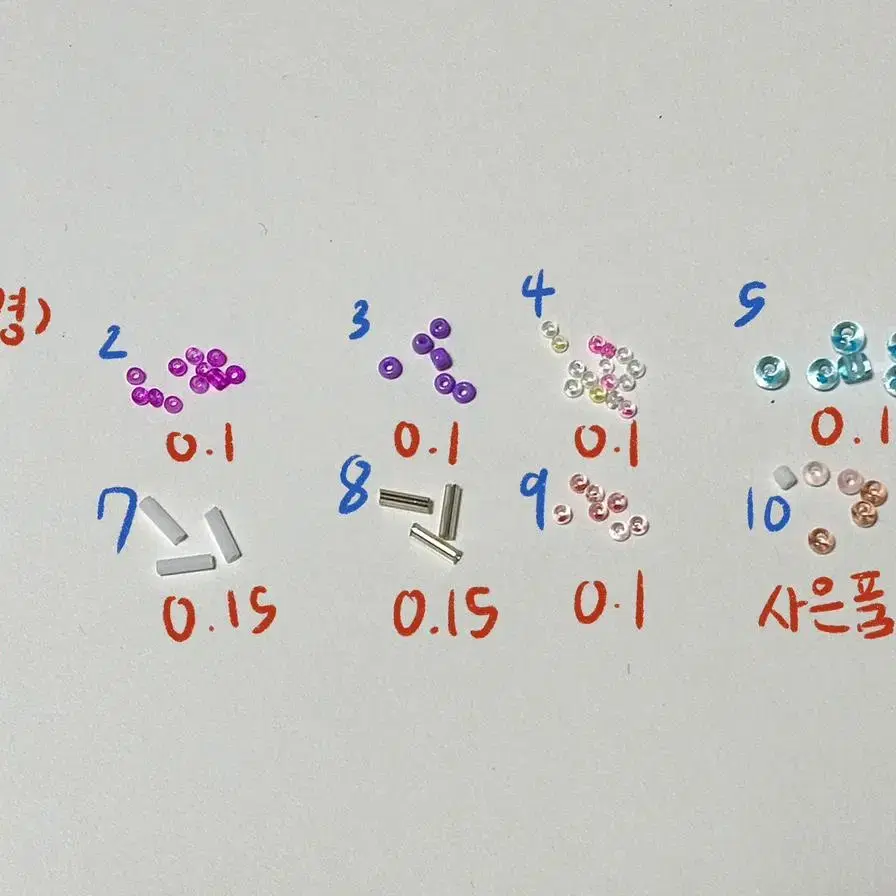 명)
2 3 4 5
0.1 0.1 0.1 0.1
7 8 9 10
0.15 0.15 0.1 사은품